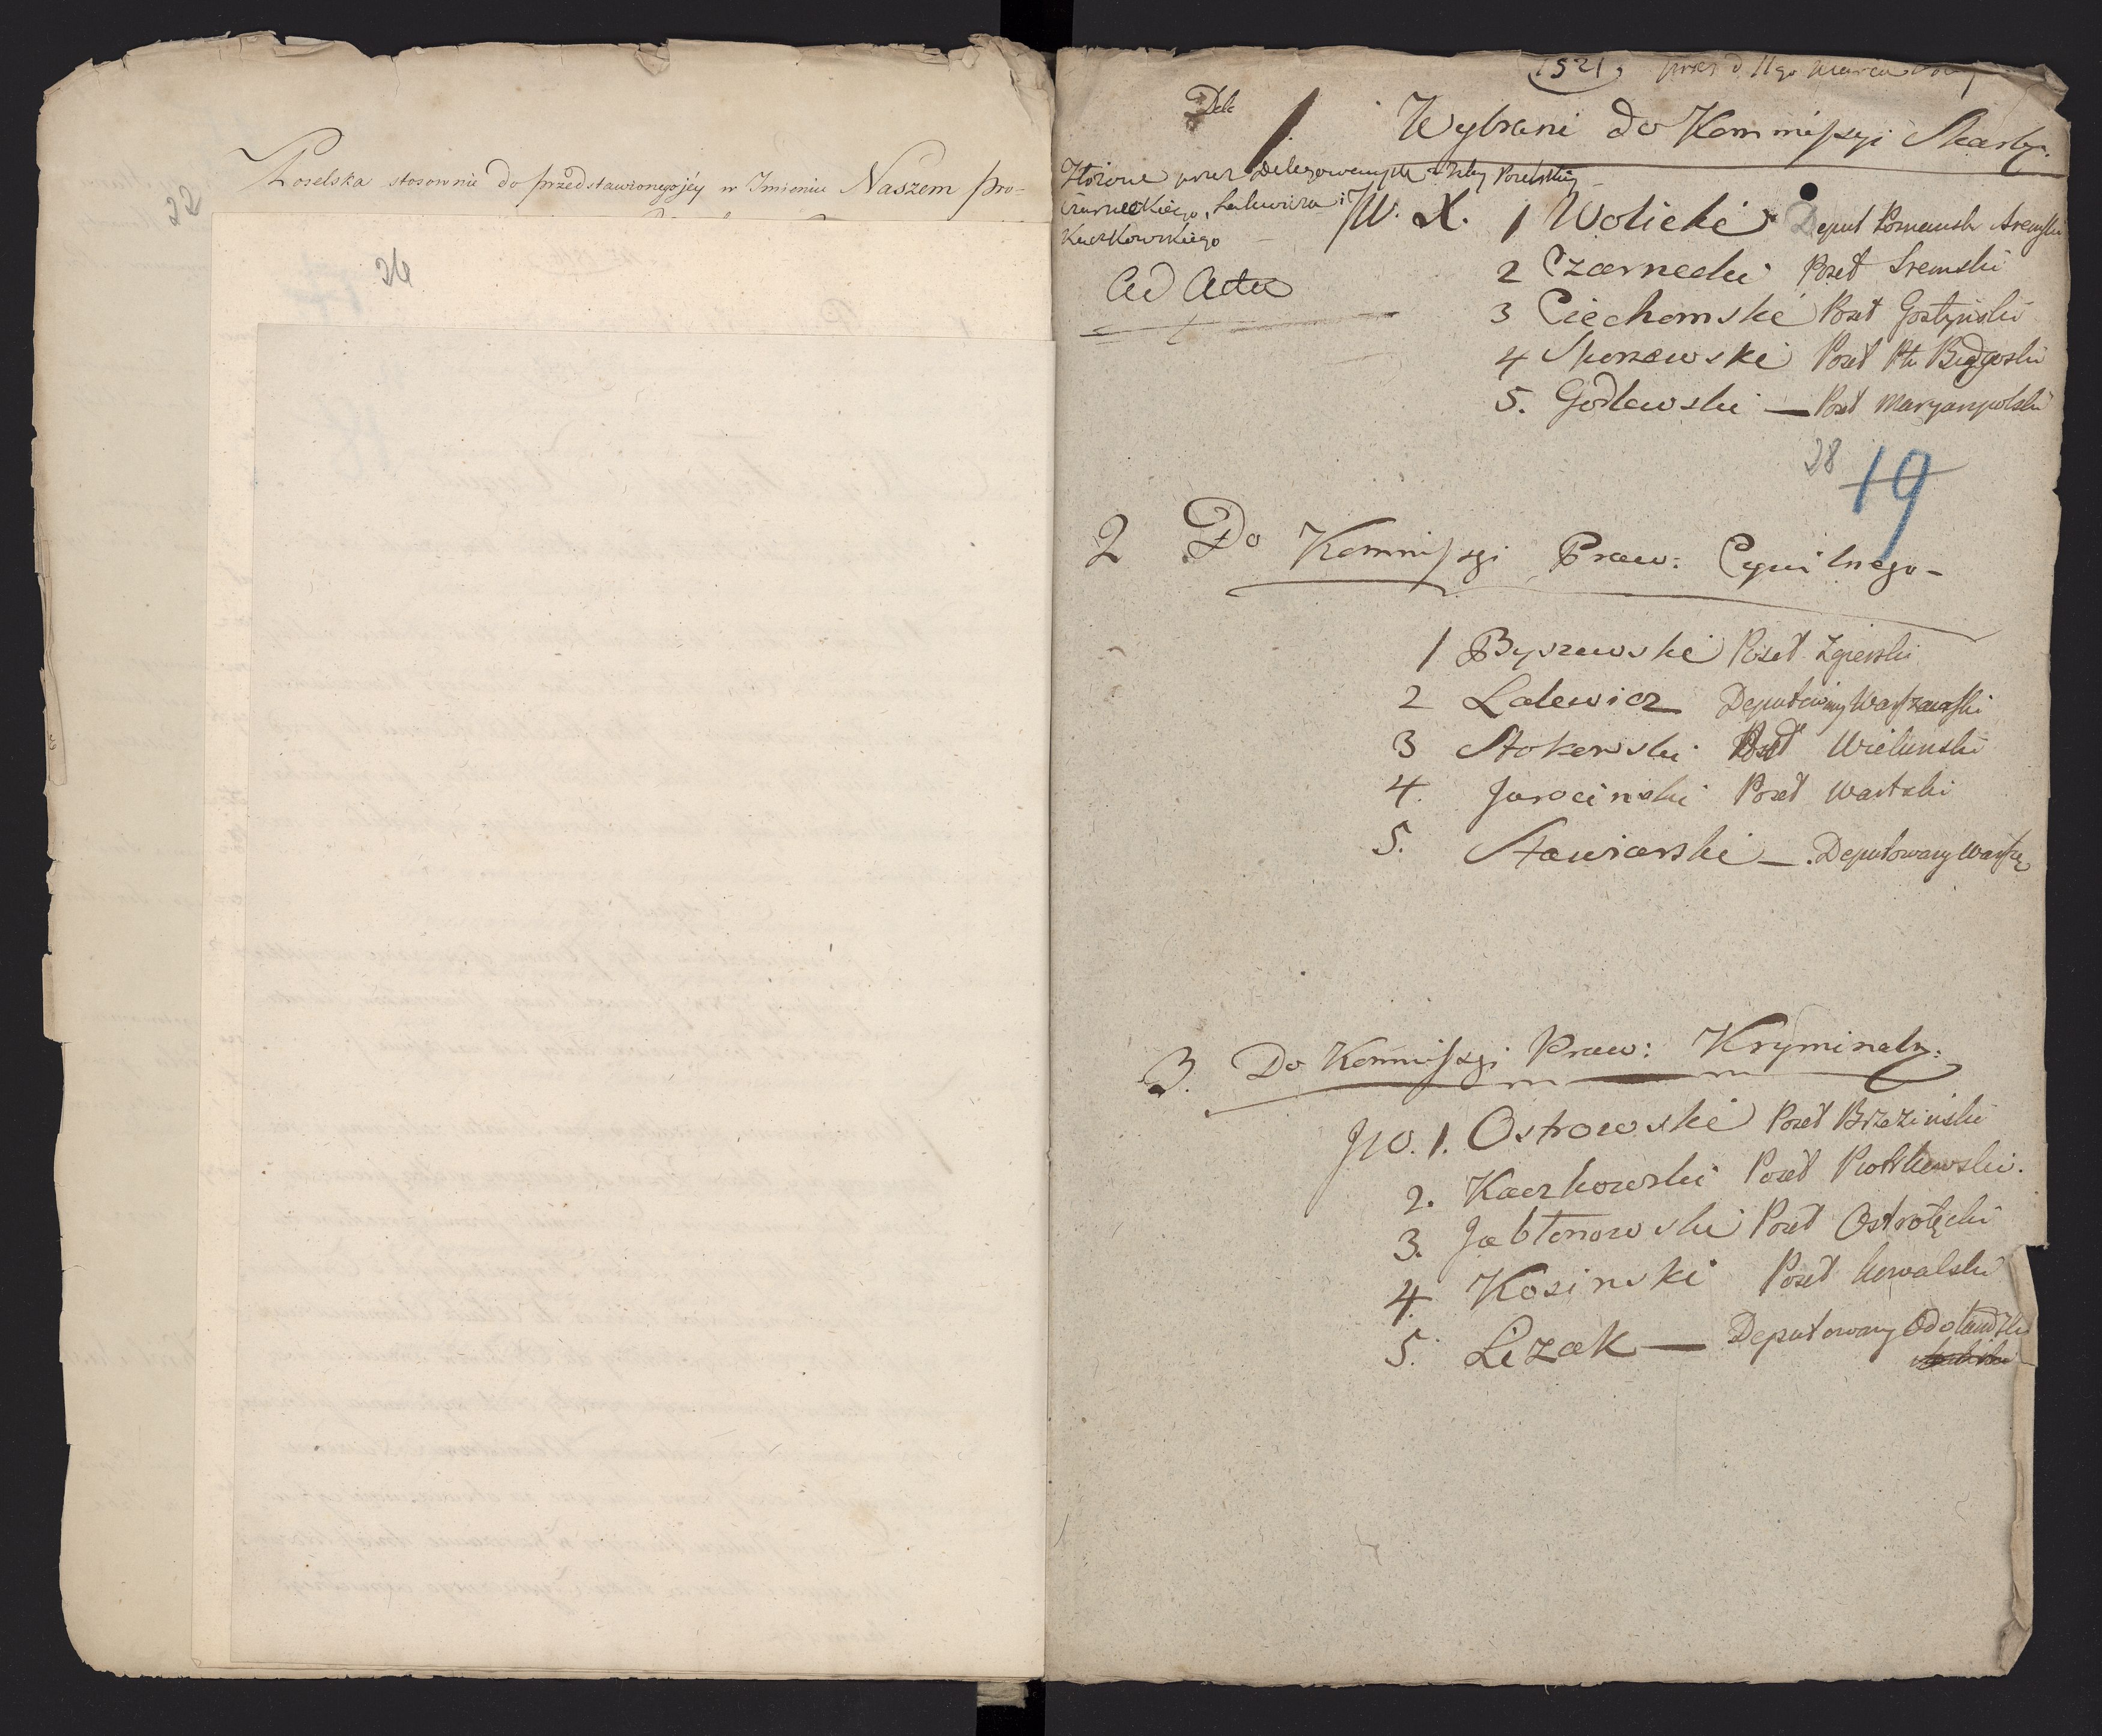 22
Poselska stosownie do przedstawionego jéy w Imieniu Naszem pro-
26
1521, prez d 11go Marca
Dek
1. Wybrani do Kommissyi Skarby.
Złożone przez Delegowanych z Izby Poselskiéy
Czarneckiego, Lalewicza i
Kaczkowskiego
Ad Acta
JW. X. 1 Wolicki Deput Poznansk Sremski
2 Czarnecki Poseł Sremski
3 Ciechomski Poseł Gostyński
4 Skorzewski Poseł Ptu Bydgoski
5. Godlewski — Poseł Maryampolski
28 19
2 Do Kommissyi Praw: Cywilnego-
1 Byszewski Poseł Zgierski
2 Lalewicz Deputowany Warszawski
3 Stokowski Poseł Wieluński
4. Jarocinski Poseł Wartski
5. Stawiarski — Deputowany Warsz
3. Do Kommissyi Praw: Kryminaln:
JW. 1. Ostrowski Poseł Brzeziński
2. Kaczkowski Poseł Piotrkowski.
3. Jabłonowski Poseł Ostrołęcki
4 Kosinski Poseł Kowalski
5. Lizak — Deputowany Odolanowski